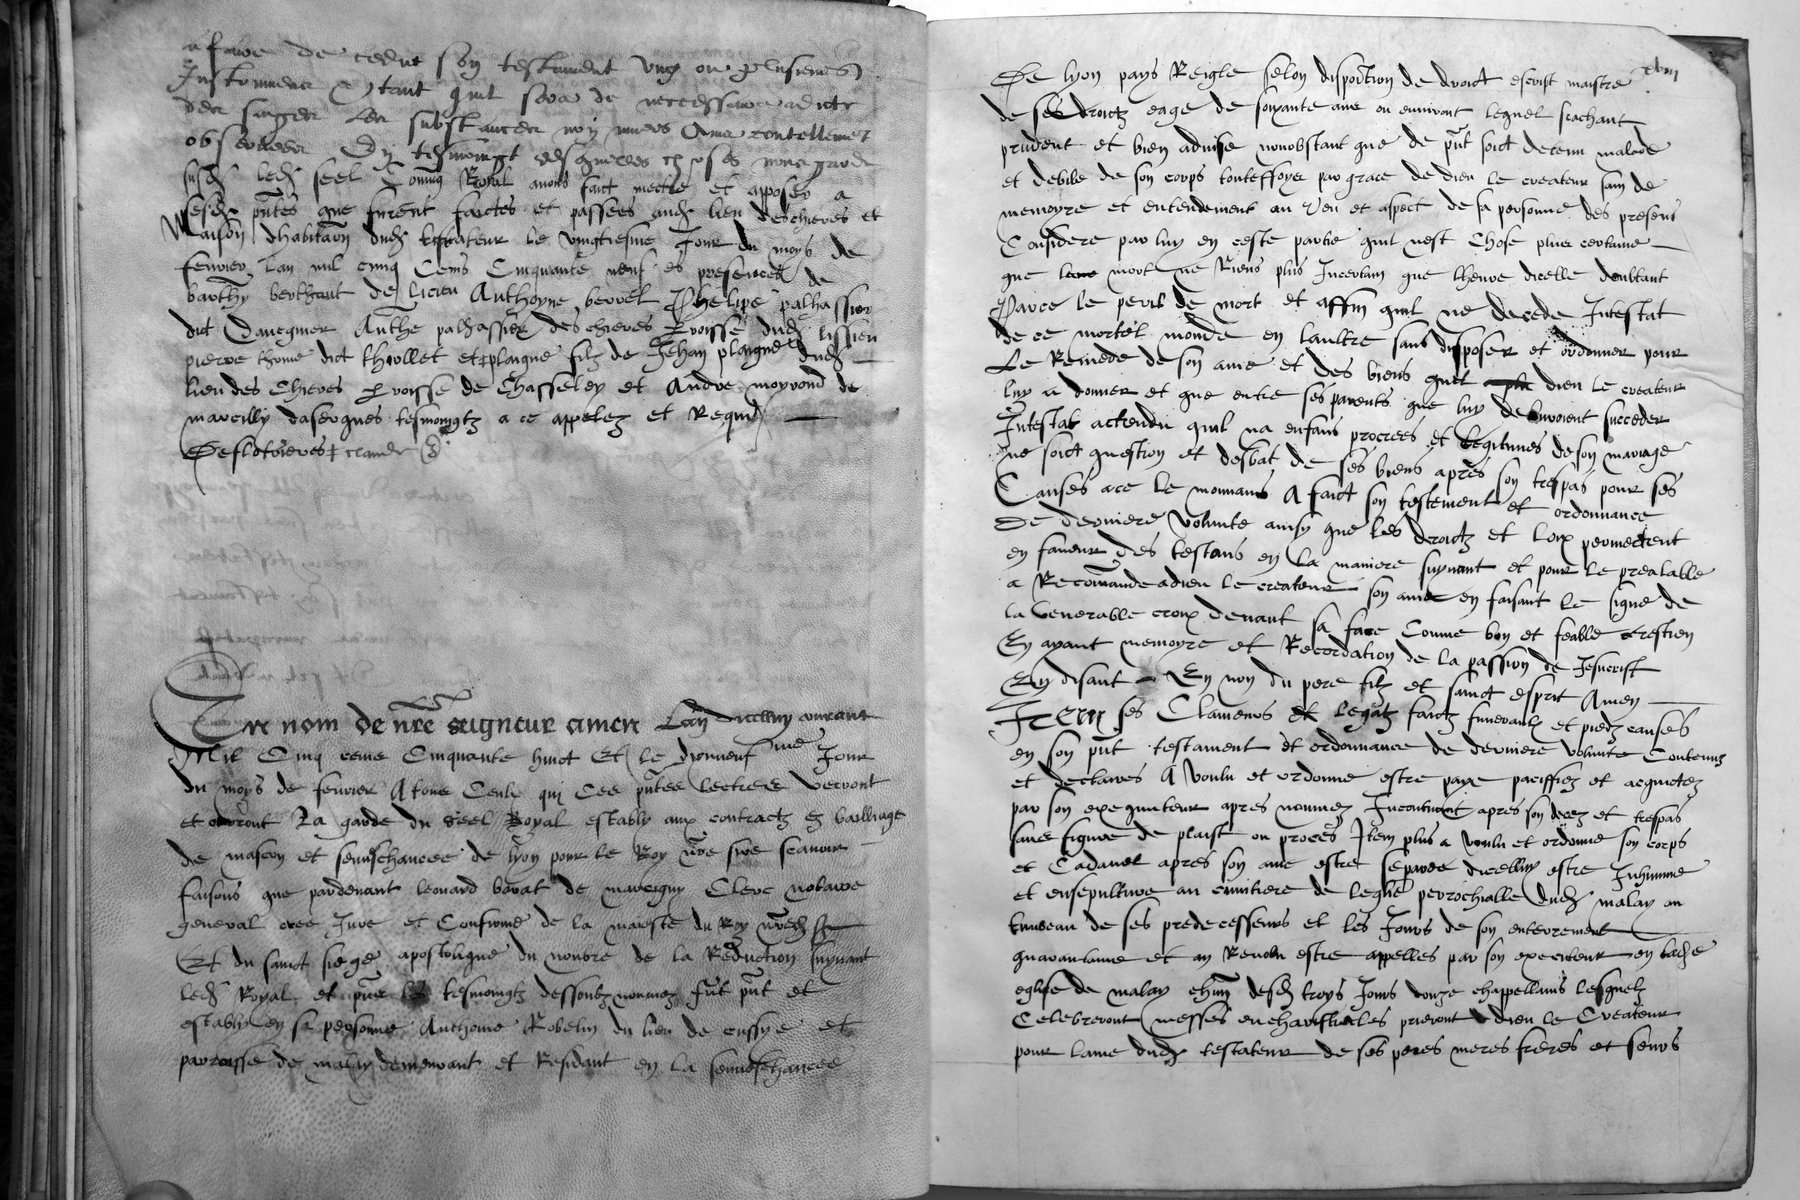 a faire de cedict son testament ung ou plusieurs
Instrumens Et tant quil sera de necessaire a dicter
observees En tesmoingt desquelles choses nous garde
susd. led. seel Commg Royal avons faict mectre et apposer a
sesd. pntes que furent faictes et passees aud. lieu deschieres et
Maison dhabitaon dud. testateur le vingtiesme Jour du moys de
fevrier Lan mil cinq Cens Cinquante neuf es presences de
barthy berthout de Licieu Anthoyne berret Phelipe palhassier
dict Anthe palhassier des chieres proisse dud. lissieu
pierre thome dict thiollet et plaigne filz de Jehan plaigne dud.
lieu des Chieres proisse de Chasseley et Andre moyrond de
marcilly dasergues tesmoingtz a ce appelez et Requis
Desflotrieres
En nom de nre seigneur amen Lan dicelluy courant
Mil Cinq cens Cinquante huict Et le dixneufme Jour
du moys de fevrier A tous Ceulx qui Ces pntes lectres verront
et orront La garde du seel Royal estably aux contractz es bailliage
de mascon et seneschaucee de lyon pour le Roy nre sire scavoir
faisons que pardevant leonard borat de marcigny Clerc notaire
general cree Jure et Confirme de la maieste du Roy nred. sr
Et du sainct siege apostolique du nombre de la Reduction suyvant
led. Royal et pns les tesmoingtz dessoubz nommez fut pnt et
estably en sa personne Anthoine Robelin du lieu de cussye et
parroisse de malay demeurant et Residant en la seneschaucee
xviii
De lyon pays Reigle selon disposition de droict escript maistre
de ses droictz eage de soixante ans ou environt lequel scachant
prudent et bien advise nonobstant que de pnt soict detenu malade
et debile de son corps touteffoyes par grace de dieu le createur sain de
memoyre et entendement au veu et aspect de sa personne des presens
Considere par luy en ceste partie quil nest Chose plus certaine
que la mort ne Riens plus Incertain que lheure dicelle doubtant
Parce le peril de mort et affin quil ne decede Intestat
de ce mortel monde en laultre sans disposer et ordonner pour
Le Remede de son ame et des biens que dieu le createur
luy a donner et que entre ses parents que luy debvroient succeder
Intestat actendu quil na enfans procrees et legitimes de son mariage
ne soict question et desbat de ses biens apres son trespas pour ses
Causes a ce le mouvans A faict son testement et ordonnance
de derniere volunte ainsy que les droictz et loix permectent
en faveur des testans en la maniere suyvant et pour le prealable
a Recomande a dieu le createur son ame en faisant le signe de
la venerable croix devant sa face Comme bon et feable crestien
En ayant memoyre et Recordation de la passion de Jesucrist
En disant En non du pere filz et sainct esprit Amen
Item ses Clameurs et legatz faictz funeraulx et piedz causes
en son pnt testament et ordonnance de derniere volunte Contenuz
et declaires A voulu et ordonne estre paye paciffiez et acquictez
par son exequuteur apres nommez Incontinent apres son deces et trespas
sans figure de plaist ou proces Item plus a voulu et ordonne son corps
et Cadavre apres son ame estre separee dicelluy estre Inhumme
et ensepulture au cimitiere de leglise perrochialle dud. malay au
tumbeau de ses predecesseurs et les Jours de son enterrement
quarantaine et an Revolu estre appelles par son executeur en lad.
eglise de malay chun desd. troys Jours unze chappellains lesquelz
Celebreront messes eucharistielles prieront dieu le Createur
pour lame dud. testateur de ses peres meres freres et seurs